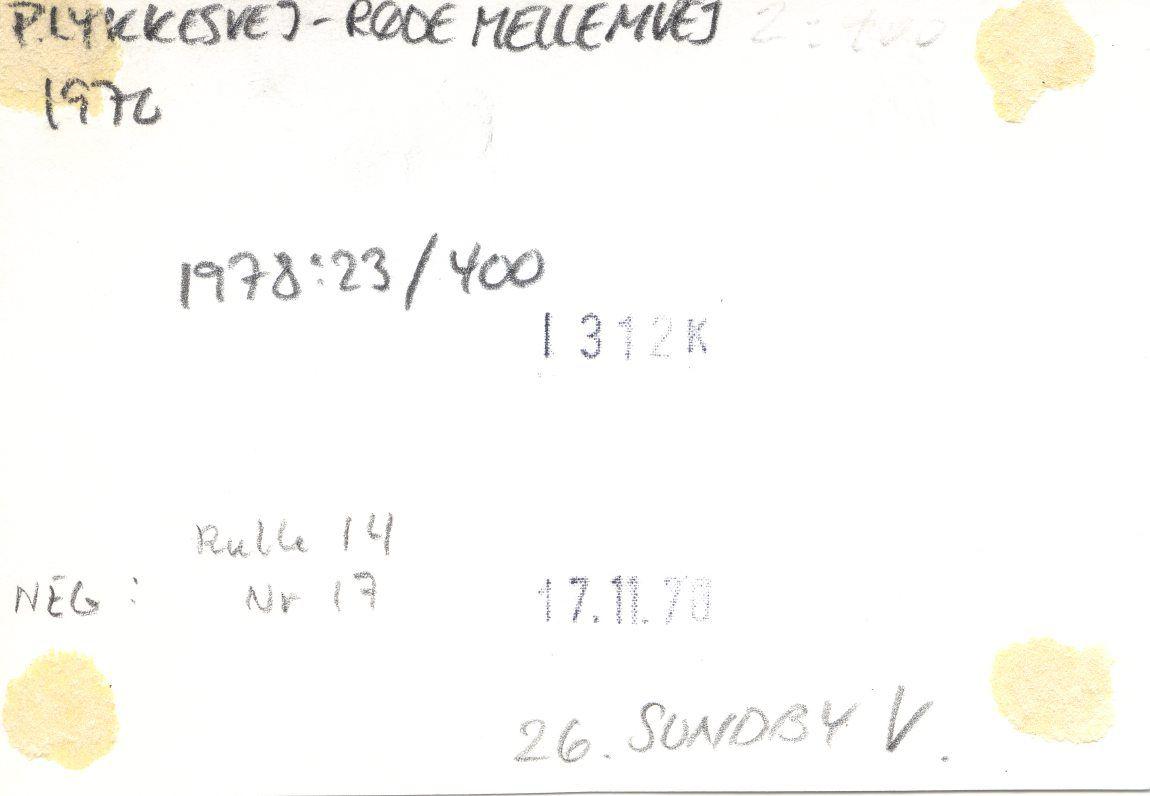 P. LYKKESVEJ - RØDE MELLEMVEJ
1978:23/400
1312K
Rulle 14
NEG: Nr 17
17.11.78
26. SUNDBY V.